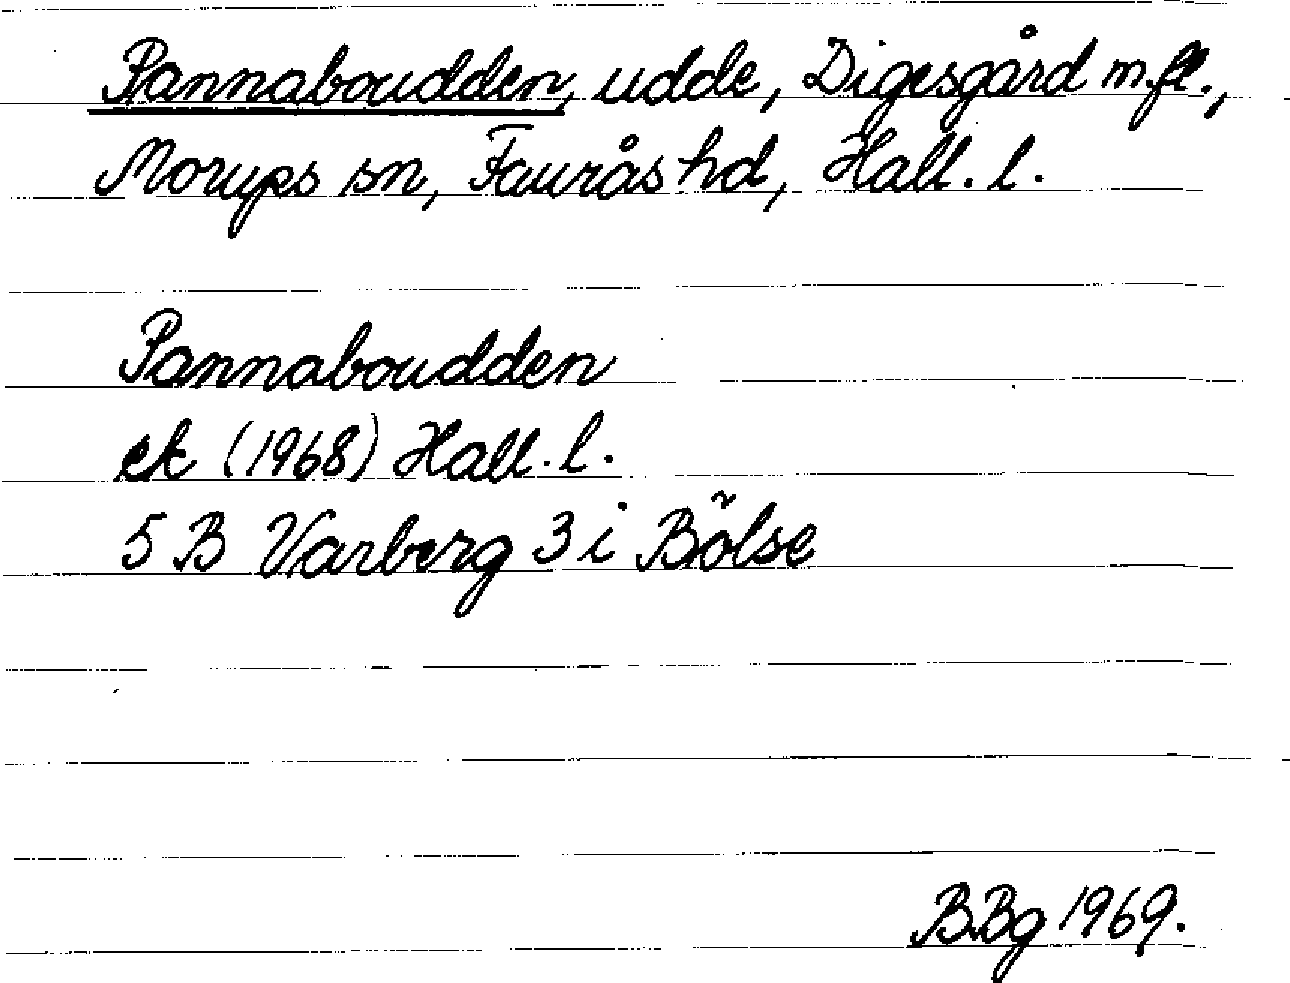 Pannaboudden, udde, Digesgård m.fl.,
Morups sn, Faurås hd, Hall. l.
Pannaboudden
ek (1968) Hall. l.
5 B Varberg 3 i Bölse
B.Bg 1969.